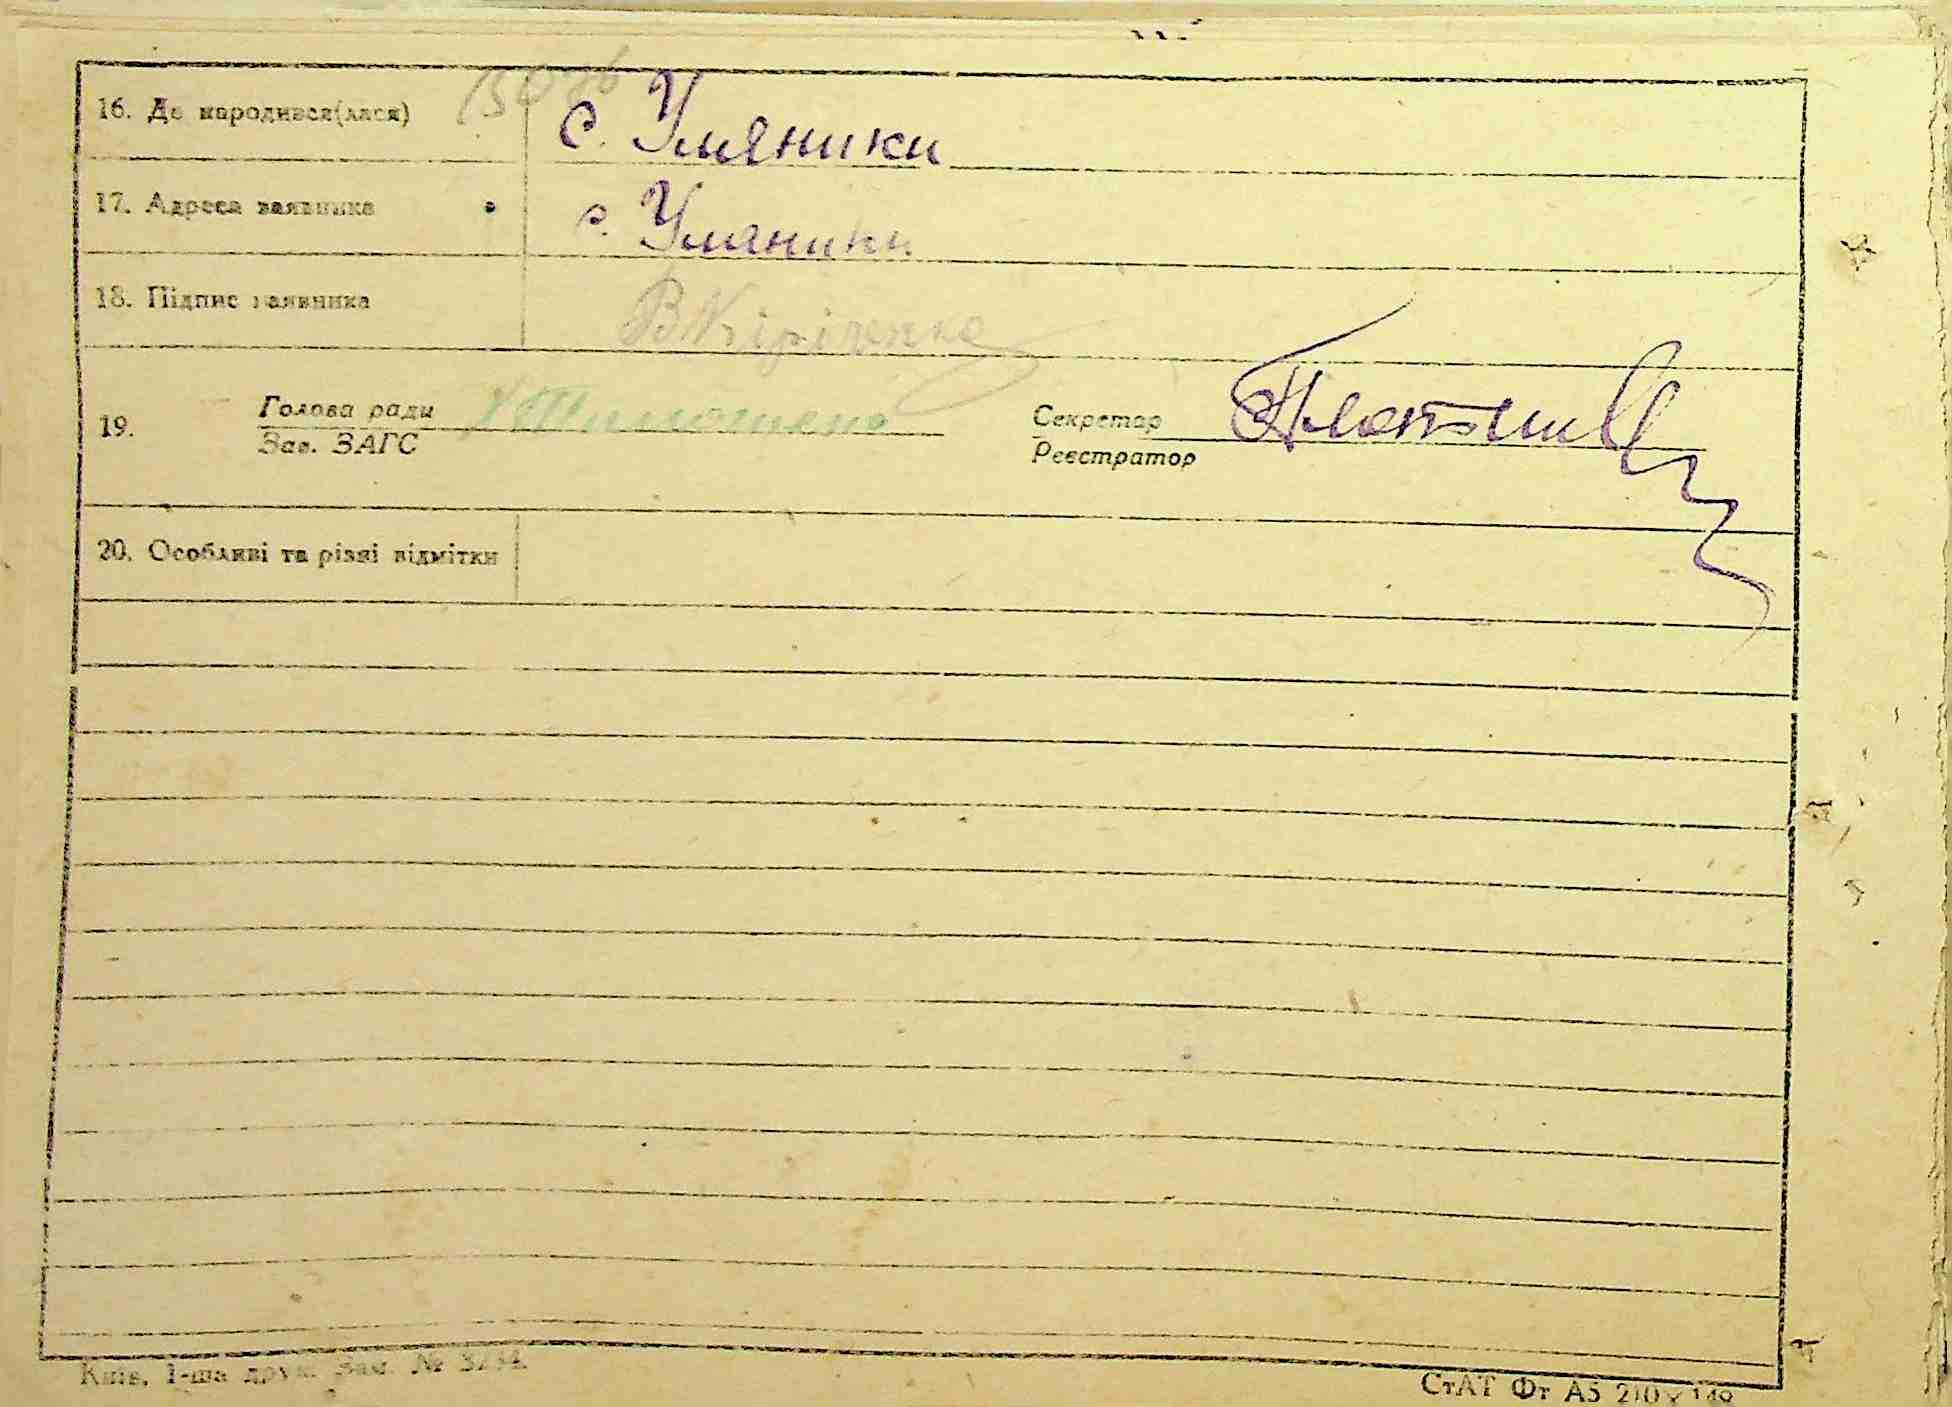 16. Де народився(лася) с. Уляники
17. Адреса заявника с. Уляники
18. Підпис заявника В Кіріченко
19. Голова ради Секретар
Зав. ЗАГС Реєстратор
20. Особливі та різні відмітки
Київ, 1-ша друк. Зам. №
СтАТ Фт А5 210 х 149